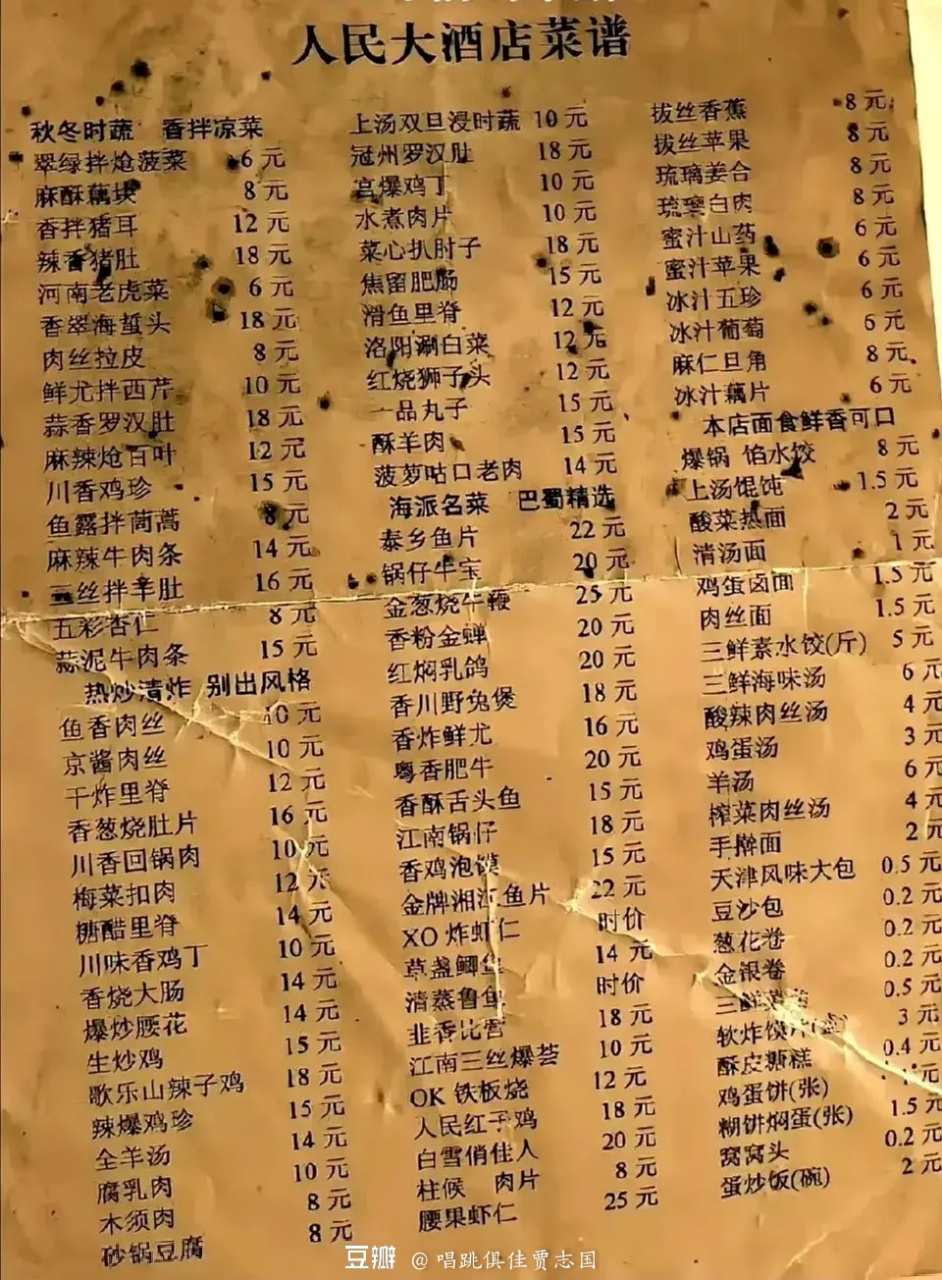 人民大酒店菜谱
秋冬时蔬 香拌凉菜
翠绿拌炝菠菜 6元
麻酥藕块 8元
香拌猪耳 12元
辣香猪肚 18元
河南老虎菜 6元
香翠海蜇头 18元
肉丝拉皮 8元
鲜尤拌西芹 10元
蒜香罗汉肚 18元
麻辣炝百叶 12元
川香鸡珍 15元
鱼露拌茼蒿 8元
麻辣牛肉条 14元
三丝拌羊肚 16元
五彩杏仁 8元
蒜泥牛肉条 15元
热炒清炸 别出风格
鱼香肉丝 10元
京酱肉丝 10元
干炸里脊 12元
香葱烧肚片 16元
川香回锅肉 10元
梅菜扣肉 12元
糖醋里脊 14元
川味香鸡丁 10元
香烧大肠 14元
爆炒腰花 14元
生炒鸡 15元
歌乐山辣子鸡 18元
辣爆鸡珍 15元
全羊汤 14元
腐乳肉 10元
木须肉 8元
砂锅豆腐 8元
上汤双旦浸时蔬 10元
冠州罗汉肚 18元
宫爆鸡丁 10元
水煮肉片 10元
菜心扒肘子 18元
焦留肥肠 15元
滑鱼里脊 12元
洛阳涮白菜 12元
红烧狮子头 12元
一品丸子 15元
酥羊肉 15元
菠萝咕口老肉 14元
海派名菜 巴蜀精选
泰乡鱼片 22元
锅仔牛宝 20元
金葱烧牛鞭 25元
香粉金蝉 20元
红焖乳鸽 20元
香川野兔煲 18元
香炸鲜尤 16元
粤香肥牛 20元
香酥舌头鱼 15元
江南锅仔 18元
香鸡泡馍 15元
金牌湘江鱼片 22元
XO炸虾仁 时价
草盏鲫鱼 14元
清蒸鲁鱼 时价
韭香比管 18元
江南三丝爆荟 10元
OK铁板烧 12元
人民红干鸡 18元
白雪俏佳人 20元
柱候 肉片 8元
腰果虾仁 25元
拔丝香蕉 8元
拔丝苹果 8元
琉璃姜合 8元
琉璃白肉 8元
蜜汁山药 6元
蜜汁苹果 6元
冰汁五珍 6元
冰汁葡萄 6元
麻仁旦角 8元
冰汁藕片 6元
本店面食鲜香可口
爆锅 馅水饺 8元
上汤馄饨 1.5元
酸菜热面 2元
清汤面 1元
鸡蛋卤面 1.5元
肉丝面 1.5元
三鲜素水饺(斤) 5元
三鲜海味汤 6元
酸辣肉丝汤 4元
鸡蛋汤 3元
羊汤 6元
榨菜肉丝汤 4元
手擀面 2元
天津风味大包 0.5元
豆沙包 0.2元
葱花卷 0.2元
金银卷 0.2元
三鲜 0.5元
软炸馍片 3元
酥皮糖糕 0.4元
鸡蛋饼(张) 元
糊饼焖蛋(张) 1.5元
窝窝头 0.2元
蛋炒饭(碗) 2元
豆瓣 @唱跳俱佳贾志国